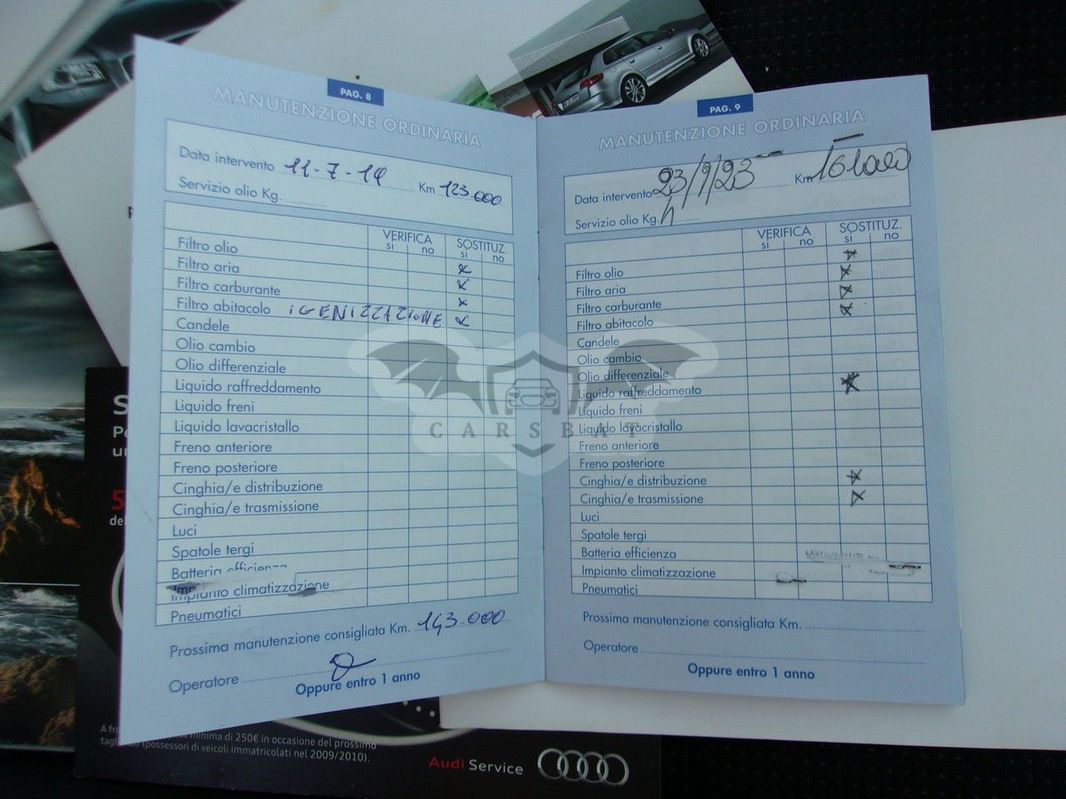 PAG. 8
MANUTENZIONE ORDINARIA
Data intervento 11-7-14 Km 123.000
Servizio olio Kg.
VERIFICA SOSTITUZ.
si no si no
Filtro olio
Filtro aria
Filtro carburante
Filtro abitacolo iGENIZZAZIONE
Candele
Olio cambio
Olio differenziale
Liquido raffreddamento
Liquido freni
Liquido lavacristallo
Freno anteriore
Freno posteriore
Cinghia/e distribuzione
Cinghia/e trasmissione
Luci
Spatole tergi
Batteria efficienza
Impianto climatizzazione
Pneumatici
Prossima manutenzione consigliata Km. 143.000
Operatore
Oppure entro 1 anno
PAG. 9
MANUTENZIONE ORDINARIA
Data intervento 23/9/23 Km
Servizio olio Kg.
VERIFICA SOSTITUZ.
si no si no
Filtro olio
Filtro aria
Filtro carburante
Filtro abitacolo
Candele
Olio cambio
Olio differenziale
Liquido raffreddamento
Liquido freni
Liquido lavacristallo
Freno anteriore
Freno posteriore
Cinghia/e distribuzione
Cinghia/e trasmissione
Luci
Spatole tergi
Batteria efficienza
Impianto climatizzazione
Pneumatici
Prossima manutenzione consigliata Km.
Operatore
Oppure entro 1 anno
CARSBAT
minima di 250€ in occasione del prossimo
(possessori di veicoli immatricolati nel 2009/2010).
Audi Service